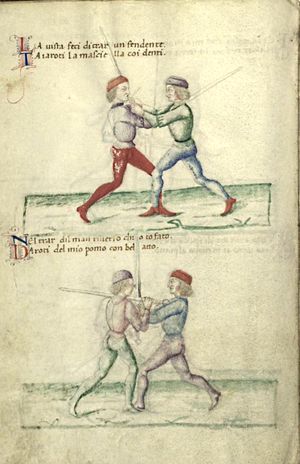 La vista feci di trar un fendente
Tataroti la mascie lla coi denti.
Nel trar dil man riverso chio to fato
Daroti del mio pomo con bel atto.